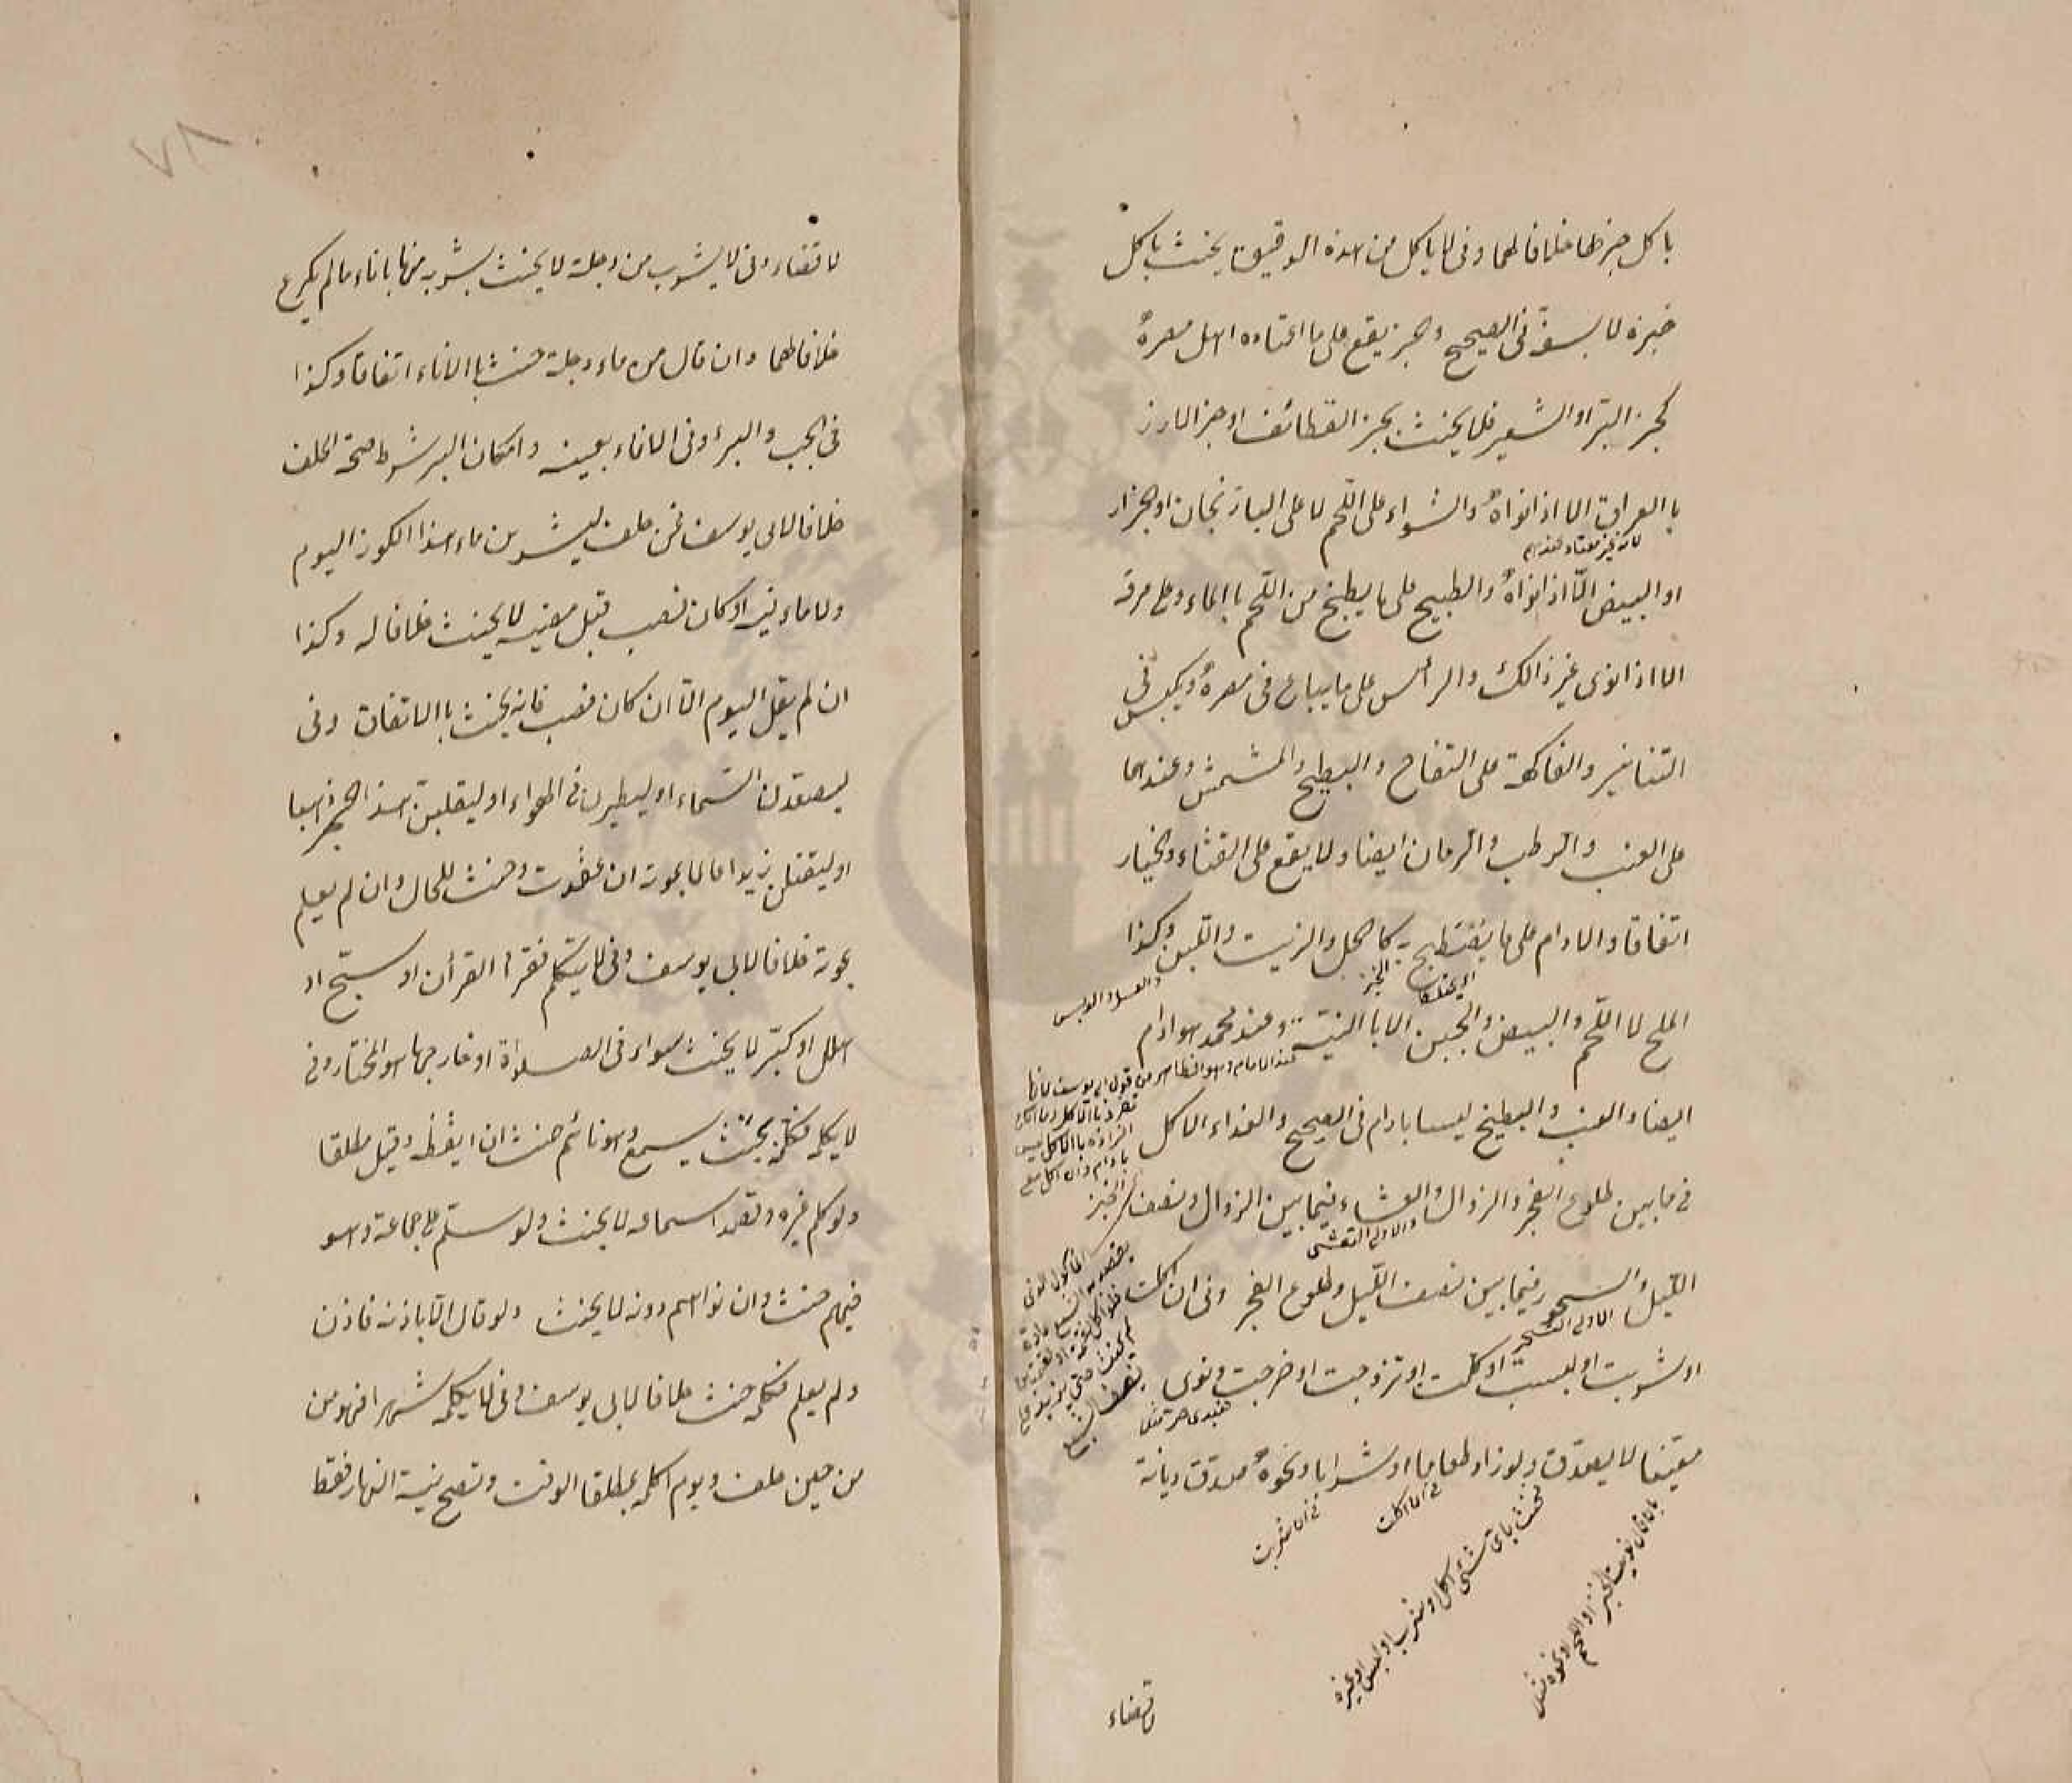 باكل خبزها خلافا لهما وفى لا ياكل من هذه الدقيق يحنث باكل
خبزه لا بسفه فى الصحيح والخبز يقع على ما اعتاده اهل مصره
كخبز البر او الشعير فلا يحنث بخبز القطائف او خبز الارز
با العراق الا اذا نواه والشواء على اللحم لا على الباذنجان او الجزر
لانه غير معتاد عندهم
او البيض الا اذا نواه والطبيخ على ما يطبخ من اللحم با الماء وعلى مرقه
الا اذا نوى غير ذالك والرأس على ما يباع فى مصره ويكبس فى
التنانير والفاكهة على التفاح والبطيخ والمشمش وعندهما
على العنب والرطب والرمان ايضا ولا يقع على القثاء والخيار
اتفاقا والادام على ما يصطبغ به كا الخل والزيت واللبن وكذا
الخبز
والعسل والدبس
الملح لا اللحم والبيض والجبن الا با النية وعند محمد هو ادام
عند الامام وهو الظاهر من قول ابى يوسف
ايضا والعنب والبطيخ ليسا بادام فى الصحيح والغداء الاكل
فى ما بين طلوع الفجر والزوال والعشاء فيما بين الزوال ونصف
الخبز
والاولى التعشى
الليل والسحور فيما بين نصف الليل وطلوع الفجر وفى ان اكلت
الاولى التسحر
او شربت او لبست او كلمت او تزوجت او خرجت ونوى
معينا لا يصدق ولو زاد طعاما او شرابا ونحوه صدق ديانة
فى ان اكلت
فى ان شربت
يحنث باى شئ اكل او شرب او لبس او غيره
بان قال نويت الخبز او اللحم او نحوه مثلا
لا قضاء
٧٨
لا قضاء وفى لا يشرب من دجلة لا يحنث بشربه منها باناء ما لم يكرع
خلافا لهما وان قال من ماء دجلة حنث با الاناء اتفاقا وكذا
فى الجب والبئر وفى الاناء بعينه وامكان البر شرط صحة الحلف
خلافا لابى يوسف فمن حلف ليشربن ماء هذا الكوز اليوم
ولا ماء فيه او كان فصب قبل مضيه لا يحنث خلافا له وكذا
ان لم يقل اليوم الا ان كان فصب فانه يحنث با الاتفاق وفى
ليصعدن السماء او ليطيرن فى الهواء او ليقلبن هذا الحجر ذهبا
او ليقتلن زيدا عالما بموته انعقدت وحنث للحال وان لم يعلم
بموته خلافا لابى يوسف وفى لا يتكلم فقرأ القرأن او سبح او
هلل او كبر لا يحنث سواء فى الصلواة او خارجها هو المختار وفى
لا يكلمه فكلمه بحيث يسمع وهو نائم حنث ان ايقظه وقيل مطلقا
ولو كلم غيره وقصد اسماعه لا يحنث ولو سلم على جماعة وهو
فيهم حنث وان نواهم دونه لا يحنث ولو قال الا باذنه فاذن
ولم يعلم فكلمه حنث خلافا لابى يوسف وفى لا يكلمه شهرا فهو من
من حين حلف ويوم اكلمه بمطلقا الوقت وتصح نية النهار فقط